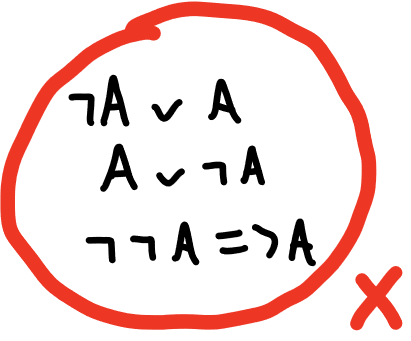 ¬A ∨ A
A ∨ ¬A
¬¬A => A